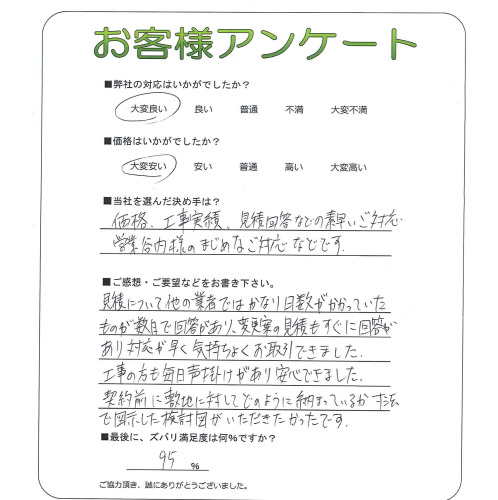 お客様アンケート
■弊社の対応はいかがでしたか？
大変良い　良い　普通　不満　大変不満
■価格はいかがでしたか？
大変安い　安い　普通　高い　大変高い
■当社を選んだ決め手は？
価格、工事実績、見積回答などの素早いご対応
営業谷内様のまじめなご対応などです.
■ご感想・ご要望などをお書き下さい。
見積について他の業者ではかなり日数がかかっていた
ものが数日で回答があり、変更案の見積もすぐに回答が
あり対応が早く気持ちよくお取引できました.
工事の方も毎日声掛けがあり安心できました.
契約前に敷地に対してどのように納まっているか寸法
で図示した検討図がいただきたかったです.
■最後に、ズバリ満足度は何%ですか？
95 %
ご協力頂き、誠にありがとうございました。